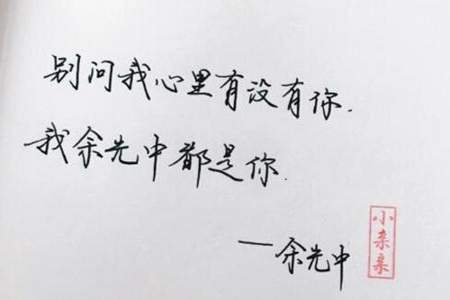 别问我心里有没有你.
我余光中都是你.
—余光中
小亲亲